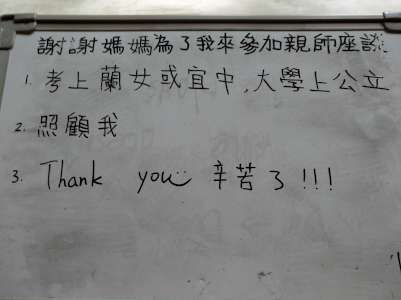 謝謝媽媽為了我來參加親師座談
1. 考上蘭女或宜中,大學上公立
2. 照顧我
3. Thank you 辛苦了!!!